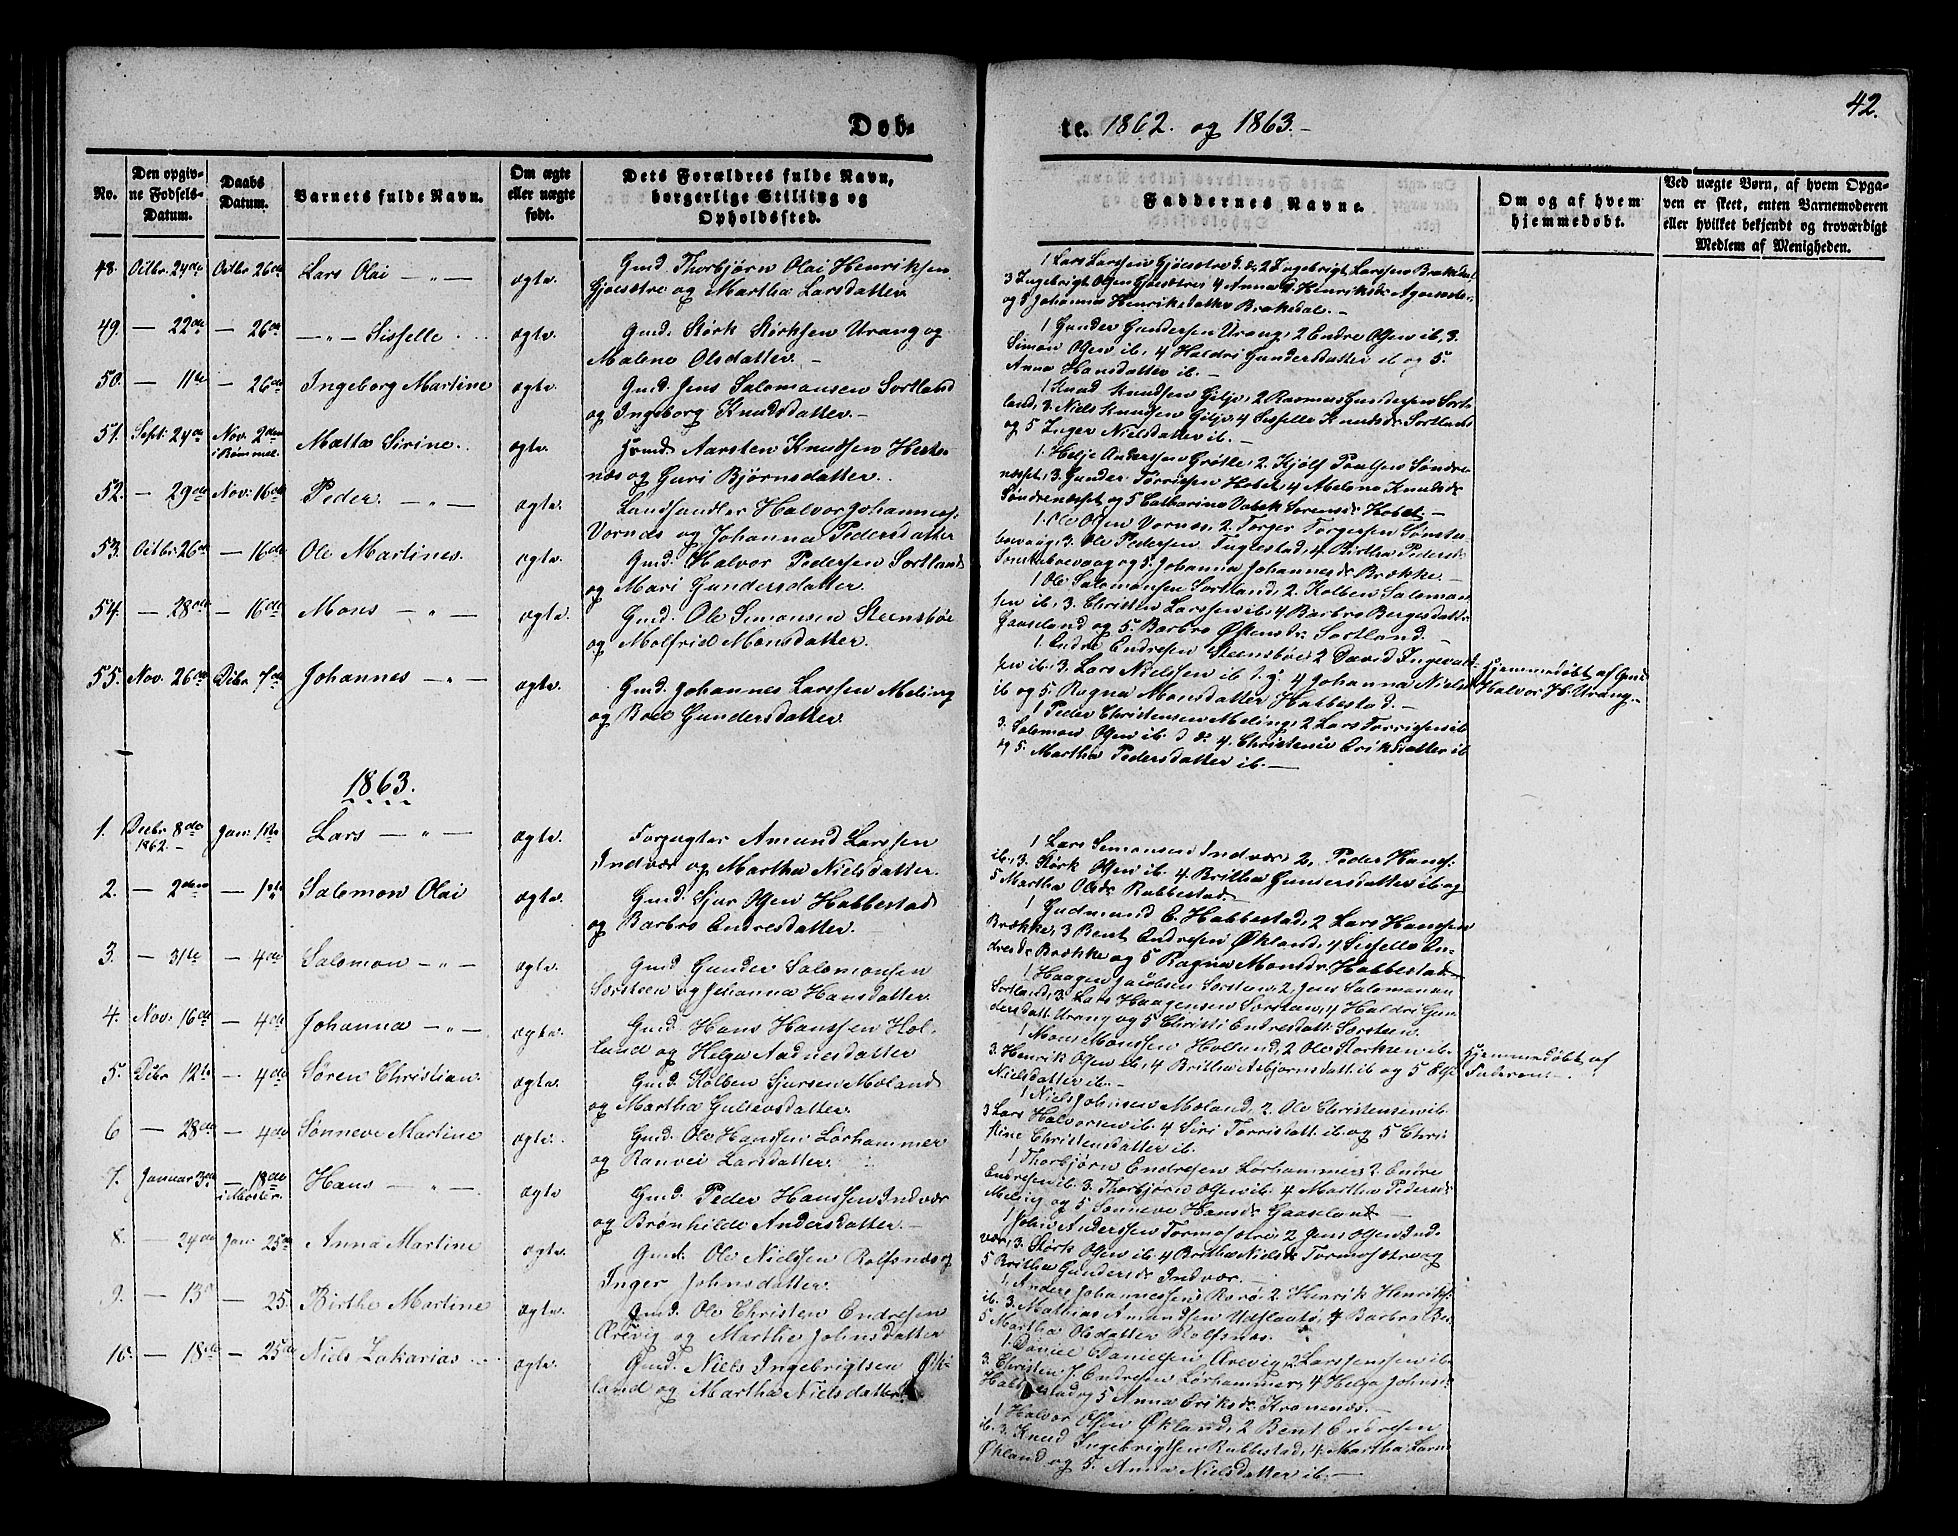 42.
Døb-
te. 1862. og 1863.-
No.
Den opgiv-
ne Fødsels-
Datum.
Daabs
Datum.
Barnets fulde Navn.
Om ægte
eller uægte
født.
Dets Forældres fulde Navn,
borgerlige Stilling og
Opholdssted.
Faddernes Navne.
Om og af hvem
hjemmedøbt.
Ved uægte Børn, af hvem Opga-
ven er skeet, enten Barnemoderen
eller hvilket bekjendt og troværdigt
Medlem af Menigheden.
48. Octbr. 24de Octbr 26de Lars Olai — " — ægte.
Gmd. Thorbjørn Olai Henriksen
Gjøesætre og Martha Larsdatter
1 Lars Larssen Gjøesætre 2 Ingebrigt Larssen Brækdal
3 Ingebrigt Olsen Gjøesætre 4 Anna Henriksdr
og 5 Johanna Henriksdatter Brækdal. —
49. — 22de — 26de — " — Sisselle ægte.
Gmd. Størk Størksen Urang og
Malene Olsdatter. —
1 Gunder Gundersen Urang, 2 Endre Olsen ib, 3.
Simon Olsen ib, 4 Haldri Gundersdatter ib og 5.
Anna Hansdatter ib. —
50. — 11te — 26de Ingeborg Martine ægte.
Gmd. Jens Salomonsen Sortland
og Ingeborg Knudsdatter. —
1 Knud Knudsen Gilje, 2 Rasmus Gundersen Sort-
land, 3. Niels Knudsen Gilje, 4 Sisselle Knudsdr Sortland
og 5 Inger Nielsdatter ib. —
51. Sept: 24de Nov. 2den
i Bømmel.
Mætta Sirine. ægte.
Gmd. Aarsten Knudsen Hestе-
næs og Guri Bjørnsdatter.
1. Helje Anderssen Grøtle, 2. Kjølf Poulsen Søndre-
næsset, 3. Gunder Torrissen Hobet, 4 Malena Knudsdr
Søndrenæsset og 5 Catharina Sørensdr Hobet. —
52. — 29de Nov: 16de Peder. — " — ægte.
Landhandler Halvor Johanness:
Vornæs og Johanna Pedersdatter
1. Ole Olsen Vornæs, 2. Torger Torgersen Sønsteb-
øvaag, 3. Ole Pedersen Fuglestad, 4 Birtha Pedersdr
og 5. Johanna Johannesdr Brække. —
53. Octbr 26de — 16de Ole Martines. ægte.
Gmd. Halvor Pedersen Sortland
og Mari Gundersdatter.
1 Ole Salomonsen Sortland, 2. Kolben Salomon-
sen ib, 3. Christen Larssen ib, 4 Barbro Børgesdatter
Gaaseland og 5. Barbro Østensdr Sortland. —
54. — 28de — 16de Mons — " — ægte.
Gmd. Ole Simonsen Steensbøe
og Molfrid Monsdatter.
1. Endre Endresen Steensbøe, 2 David Ingevald-
sen ib, 3. Lars Nielssen ib 4 Johanna Nielsdr
ib og 5. Ragna Monsdatter Habbestad. —
55. Nov. 26de Dcbr 7de Johannes — " — ægte.
Gmd. Johannes Larssen Meling
og Boel Gundersdatter.
1 Peder Christensen Meling, 2 Lars Torrissen ib
3. Salomon Olsen ib. 4. Christense Eriksdatter ib
og 5. Martha Pedersdatter ib. —
Hjemmedøbt af Gmd
Halvor H. Urang. —
1863.
1. Decbr 8de
1862. —
Jan: 1ste Lars — " — ægte.
Forpagter Amund Larssen
Indvær og Martha Nielsdatter.
1 Lars Simonsen Indvær, 2, Peder Hanss:
ib, 3. Størk Olsen ib. 4. Britha Gundersdatter ib. og
5 Martha Olsdr Rubbestad. —
2. — 2den — 1ste Salomon Olai ægte.
Gmd. Sjur Olsen Habbestad
og Barbro Endresdatter. —
1 Gudmund E. Habbestad, 2 Lars Hanssen
Brække, 3 Bent Endresen Økland, 4 Sisselle En-
dresdr Brække og 5 Ragna Monsdr. Habbestad. —
3. — 31te — 4de Salomon — " — ægte.
Gmd Gunder Salomonsen
Sørsteen og Johanna Hansdatter.
1 Haagen Jacobsen Sørsteen, 2, Jens Salomonsen
Sortland, 3. Lars Haagensen Sørsteen, 4 Haldri Gun-
dersdatt: Urang og 5 Christi Endresdatt: Sørsteen.
4. Nov: 16de — 4de Johanna — " — ægte.
Gmd. Hans Hanssen Hol-
land og Helga Aadnesdatter
1 Mons Monssen Holland, 2 Ole Størksen ib.
3. Henrik Olsen ib, 4 Britha Asbjørnsdatt: ib og 5 Else
Nielsdatter ib. —
Hjemmedøbt af
Faderen. —
5. Dcbr 12te — 4de Søren Christian. ægte.
Gmd. Kolben Sjursen Moland
og Martha Gulleivsdatter.
1 Niels Johnsen Moland, 2. Ole Christensen ib.
3 Lars Halvorsen ib. 4 Siri Torrisdatt: ib. og 5 Chris-
tine Christensdatter ib.
6 — 28de — 4de Sønneve Martine ægte.
Gmd. Ole Hanssen Lørhammer
og Ranvei Larsdatter.
1 Thorbjørn Endresen Lørhammer, 2. Endre
Endresen ib. 3. Thorbjørn Olsen ib. 4 Martha Pedersdr
Meling og 5 Sønneve Hansdr Gaaseland.
7. Januar 3die — 18de
i Moster.
Hans — " — ægte
Gmd. Peder Hanssen Indvær
og Brønhilde Andersdatter. —
1 John Anderssen Tormosætre, 2 Jens Olsen Ind-
vær, 3. Størk Olsen ib. 4 Britha Nielsdr Tormosætre og
5 Britha Gundersdr Indvær. —
8. — 24de Jan: 25de Anna Martine ægte.
Gmd. Ole Nielssen Rolfsnæs og
Inger Johnsdatter.
1, Anders Johannessen Rorø, 2. Henrik Henrikss:
ib. 3. Mathias Amundsen 4 Barbro
5 Martha Olsdatter Rolfsnæs.
9. — 13de — 25. Birthe Martine ægte.
Gmd. Ole Christen Endresen
Ørevig og Marthe Johnsdatter
1. Daniel Danielsen Ørevig, 2 Lars Jenssen ib.
3. Christen J. Endresen Lørhammer, 4 Helga Johnsdr
Habbestad og 5 Anna Eriksdr. Kræmmernæs.
10. — 18de — 25de Niels Zakarias. ægte.
Gmd. Niels Ingebrigtsen Øk-
land og Martha Nielsdatter
1 Halvor Olsen Økland, 2 Bent Endresen
ib. 3. Knud Ingebrigtsen Rubbestad, 4. Martha Larsdr
Økland og 5. Anna Nielsdatter ib. —